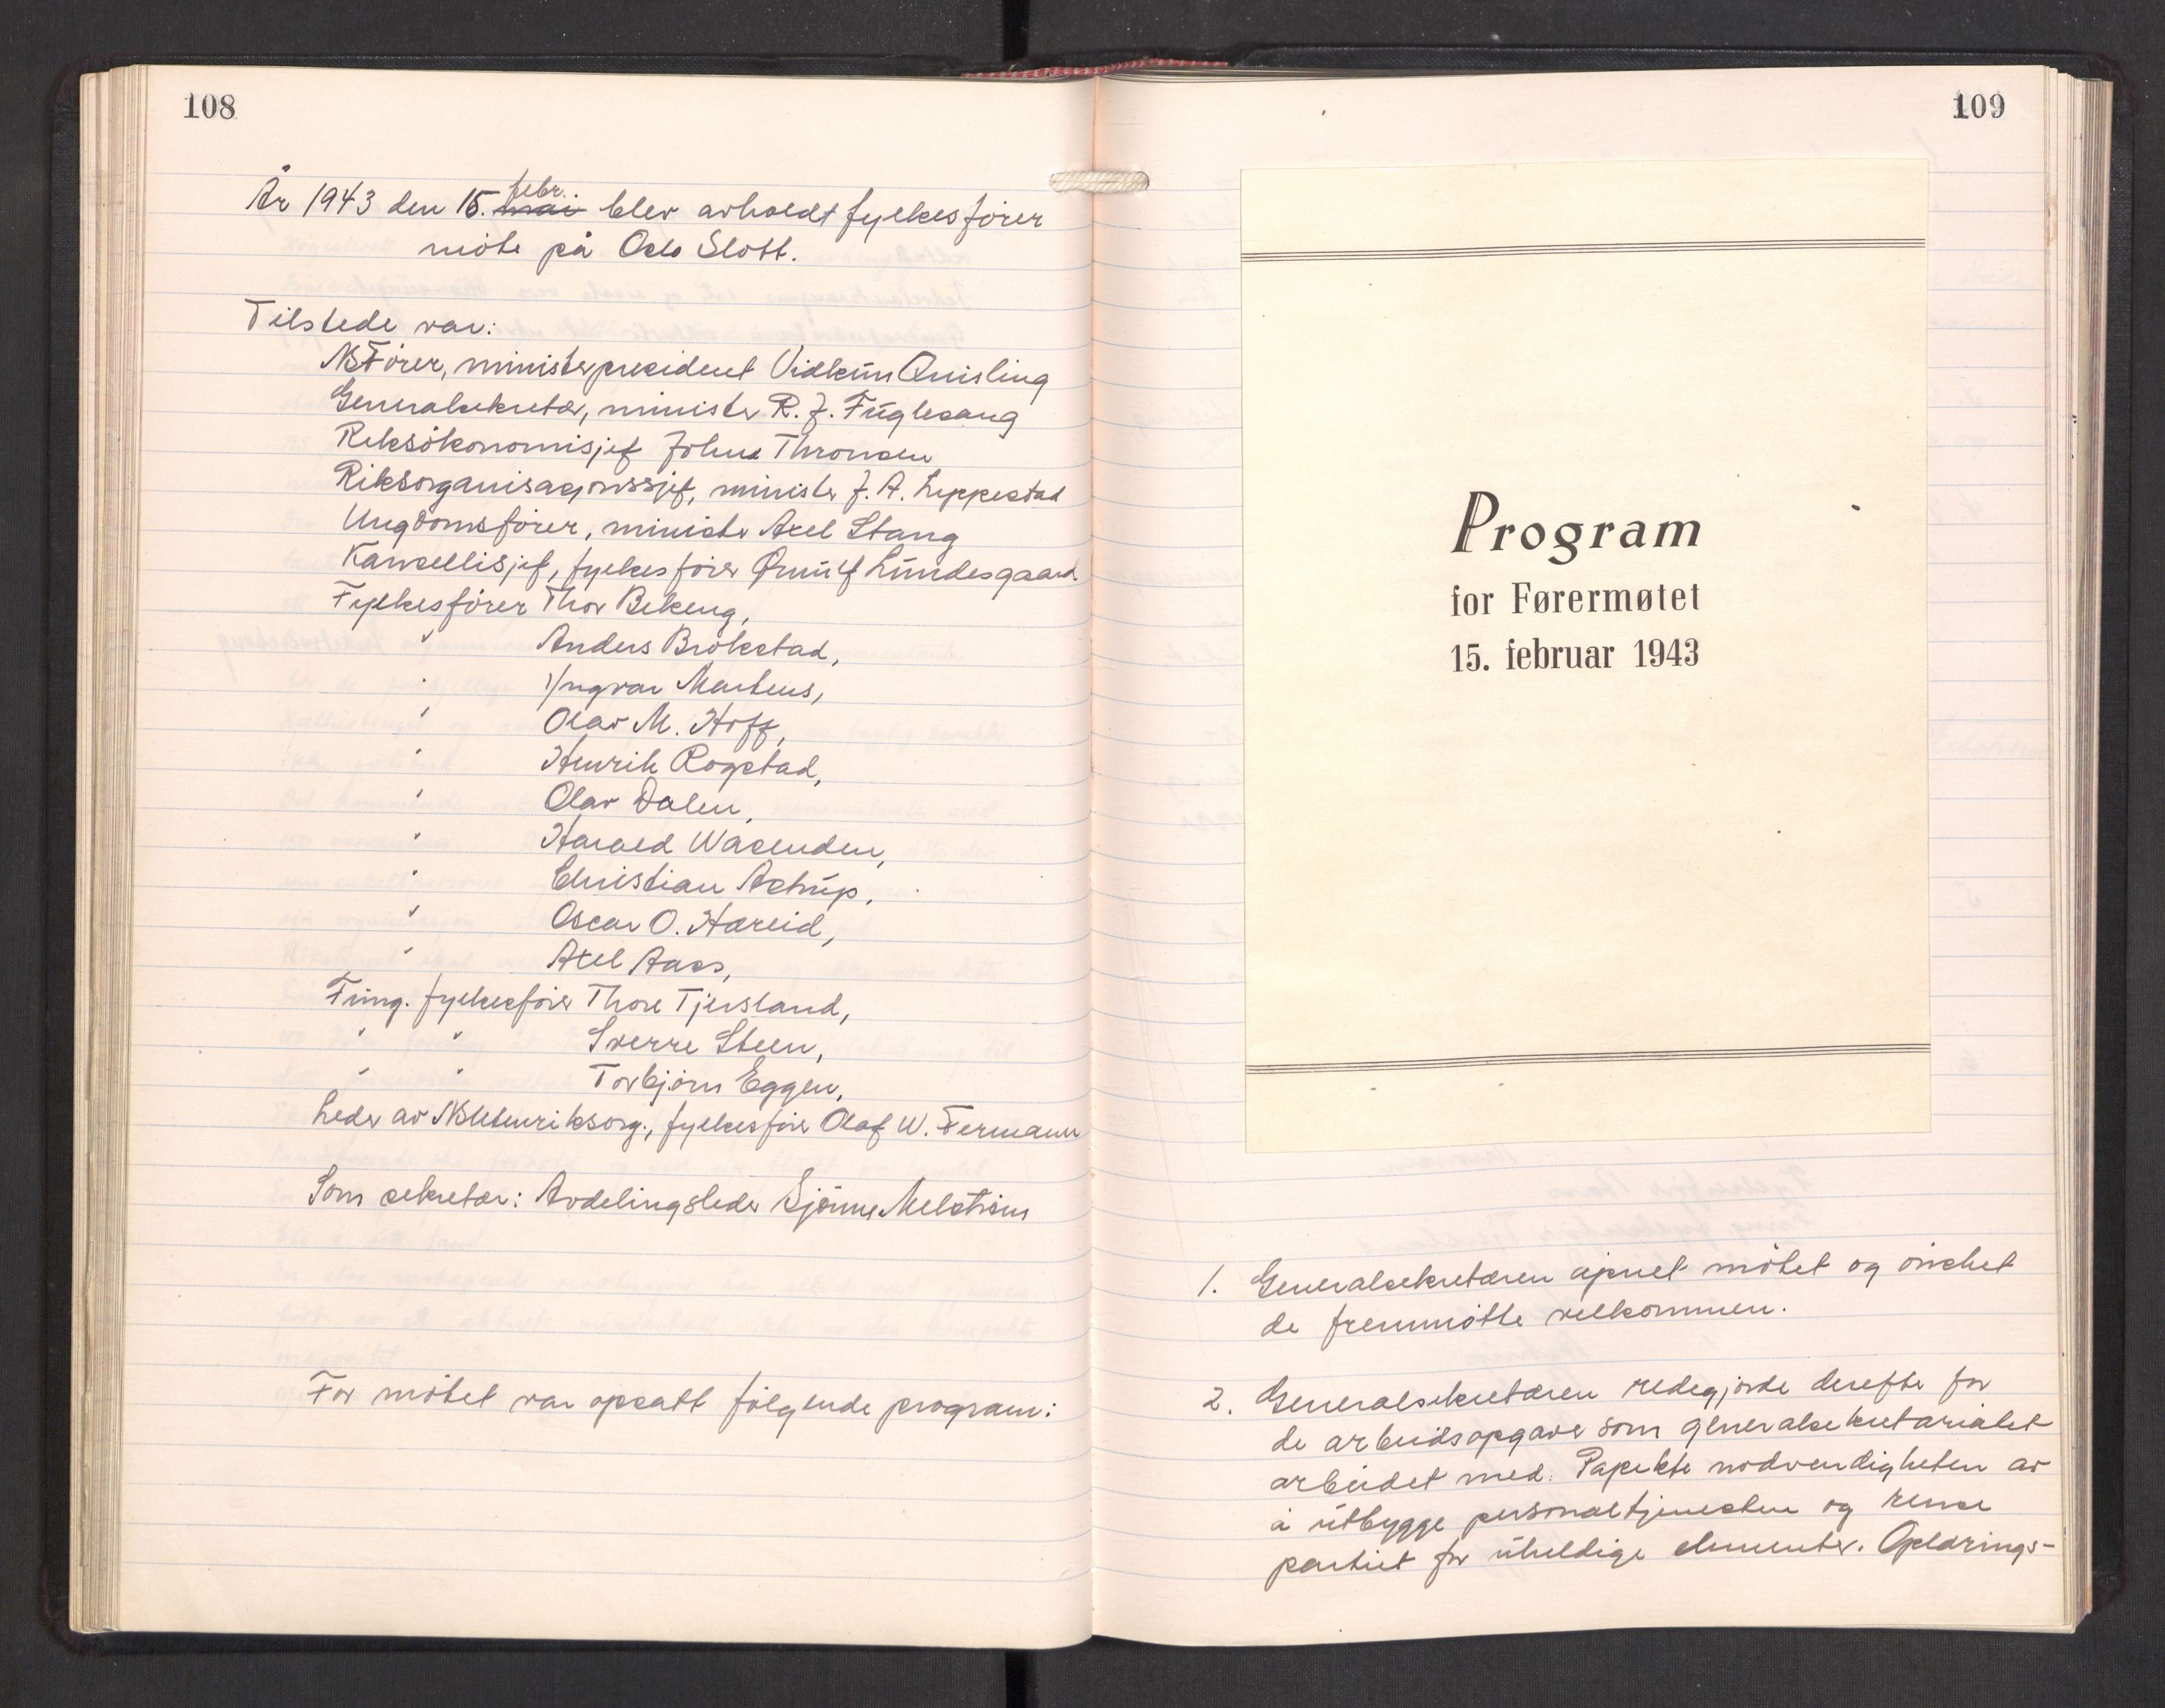 108
År 1943 den 15. mai febr. blev avholdt fylkesfører
møte på Oslo Slott.
Tilstede var:
NSFører, ministerpresident Vidkun Quisling
Generalsekretær, minister R. J. Fuglesang
Riksökonomisjef Johns Thronsen
Riksorganisasjonssjef, minister J. A. Lippestad
Ungdomsfører, minister Axel Stang
Kansellisjef, fylkesfører Ørnulf Lundesgaard
Fylkesfører Thor Bekeng,
" Anders Brökstad,
" Yngvar Martens,
" Olav M. Hoff,
" Henrik Rogstad,
" Olav Dalen,
" Harald Wasenden,
" Christian Astrup,
" Oscar O. Hæreid,
" Axel Aass,
Fung. fylkesfører Thore Tjersland,
" " Sverre Steen,
" " Torbjörn Eggen,
Leder av NSUtenriksorg., fylkesfører Olaf W. Fermann
Som sekretær: Avdelingsleder Melström
For møtet var opsatt følgende program:
109
Program
for Førermøtet
15. februar 1943
1. Generalsekretæren åpnet møtet og ønsket
de fremmøtte velkommen.
2. Generalsekretæren redegjorde derefter for
de arbeidsopgaver som generalsekretariatet
arbeidet med. Påpekte nødvendigheten av
å utbygge personaltjenesten og rense
partiet for uheldige elementer. Oplærings-